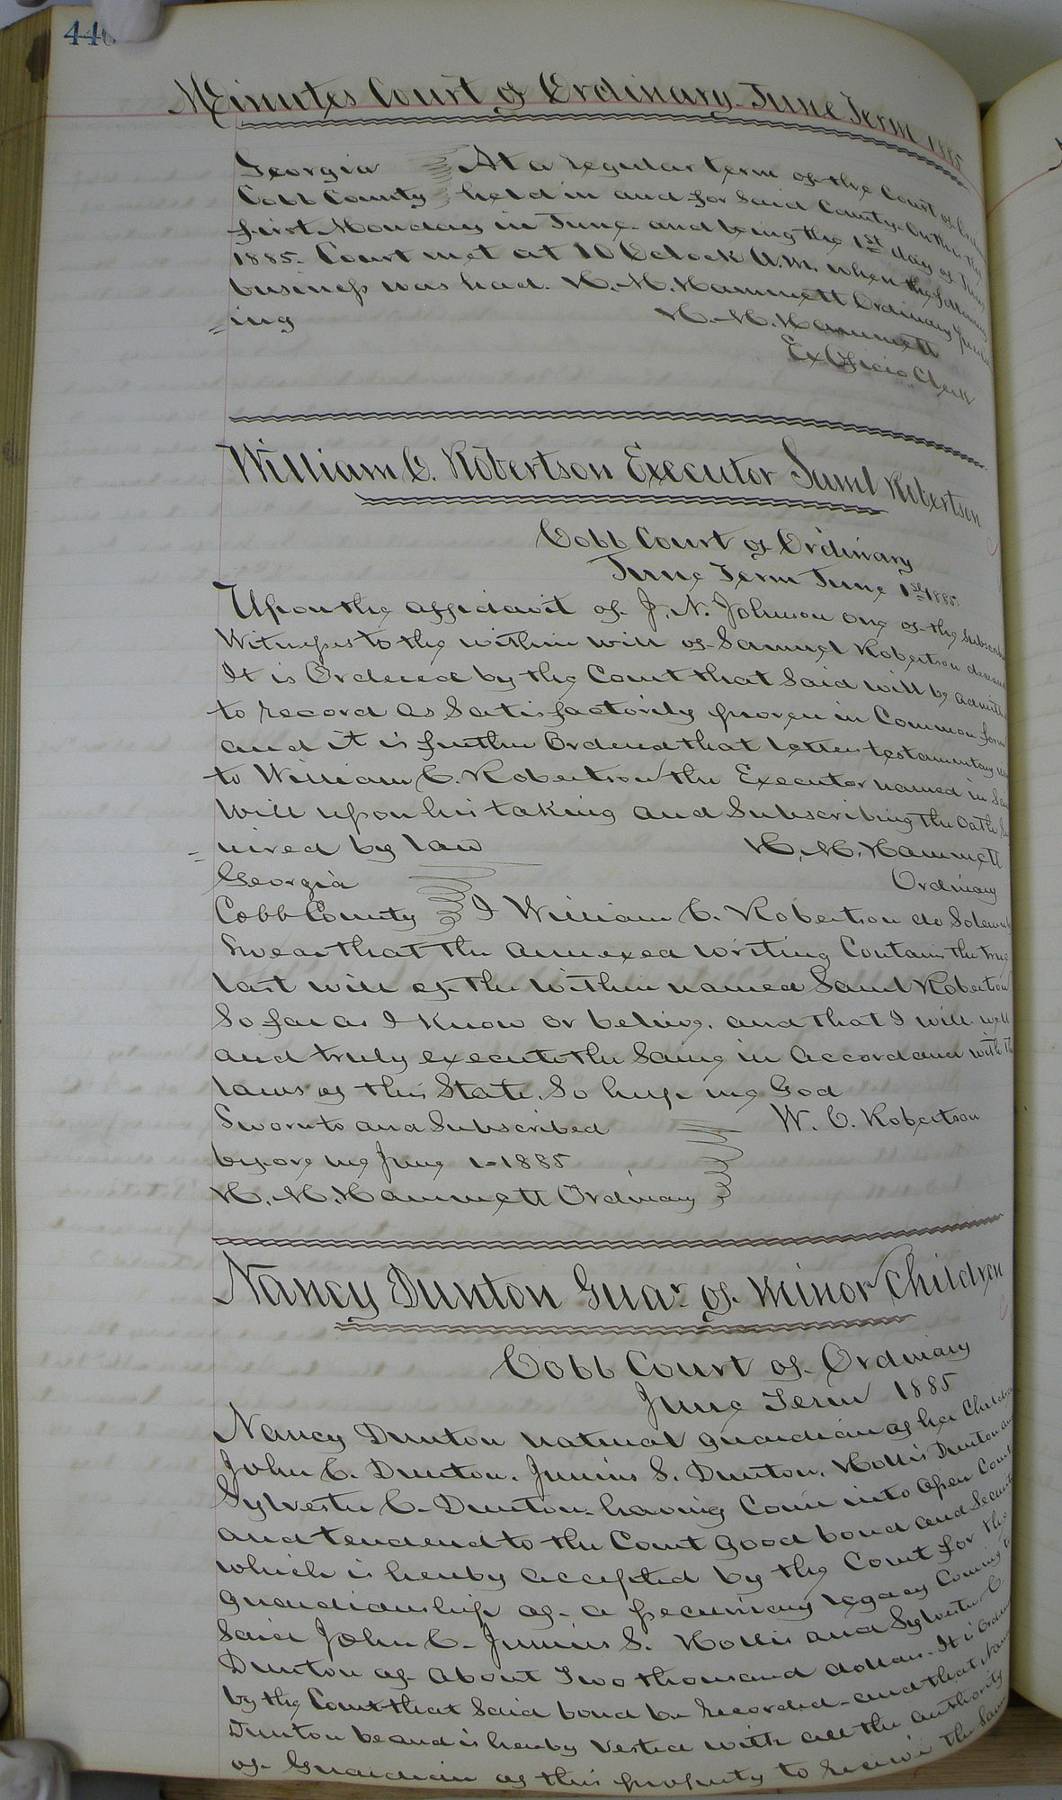 Minutes Court of Ordinary June Term 1885
Georgia At a regular term of the Court of
Cobb County held in and for Said County On the
first Monday in June and being the 1st day of June
1885. Court met at 10 Oclock A.M. when the following
business was had. H. M. Hammett Ordinary
ing H. M. Hammett
Ex Oficio Clerk
William C. Robertson Executor Saml Robertson
Cobb Court of Ordinary
June Term June 1st 1885
Upon the affidavit of J. N. Johnson one of the
Witness to the within will of Samuel Robertson
It is Ordered by the Court that Said will be
to record as Satisfactorily proven in Common form
and it is further Ordered that letters testamentary
to William C. Robertson the Executor named in
Will upon his taking and Subscribing the Oath
uired by law H. M. Hammett
Georgia Ordinary
Cobb County I William C. Robertson do
Swear that the annexed writing Contains the true
last will of the within named Saml Robertson
So far as I know or believe. and that I will well
and truly execute the Same in accordance with
laws of this State. So help me God
Sworn to and Subscribed W. C. Robertson
before me June 1-1885
H. M. Hammett Ordinary
Nancy Dunton Guar of Minor Children
Cobb Court of Ordinary
June Term 1885
Nancy Dunton natural guardian of her
John C. Dunton, Junius S. Dunton, Hollis Dunton
Sylvester C. Dunton having Come into Open Court
and tendered to the Court good bond and
which is hereby accepted by the Court for the
guardianship of a pecuniary legacy Coming
Said John C. Junius S. Hollis and Sylvester C
Dunton of about Two thousand dollars. It is
by the Court that Said bond be recorded and that
Dunton be and is hereby vested with all the authority
of Guardian of this property to receive the Same